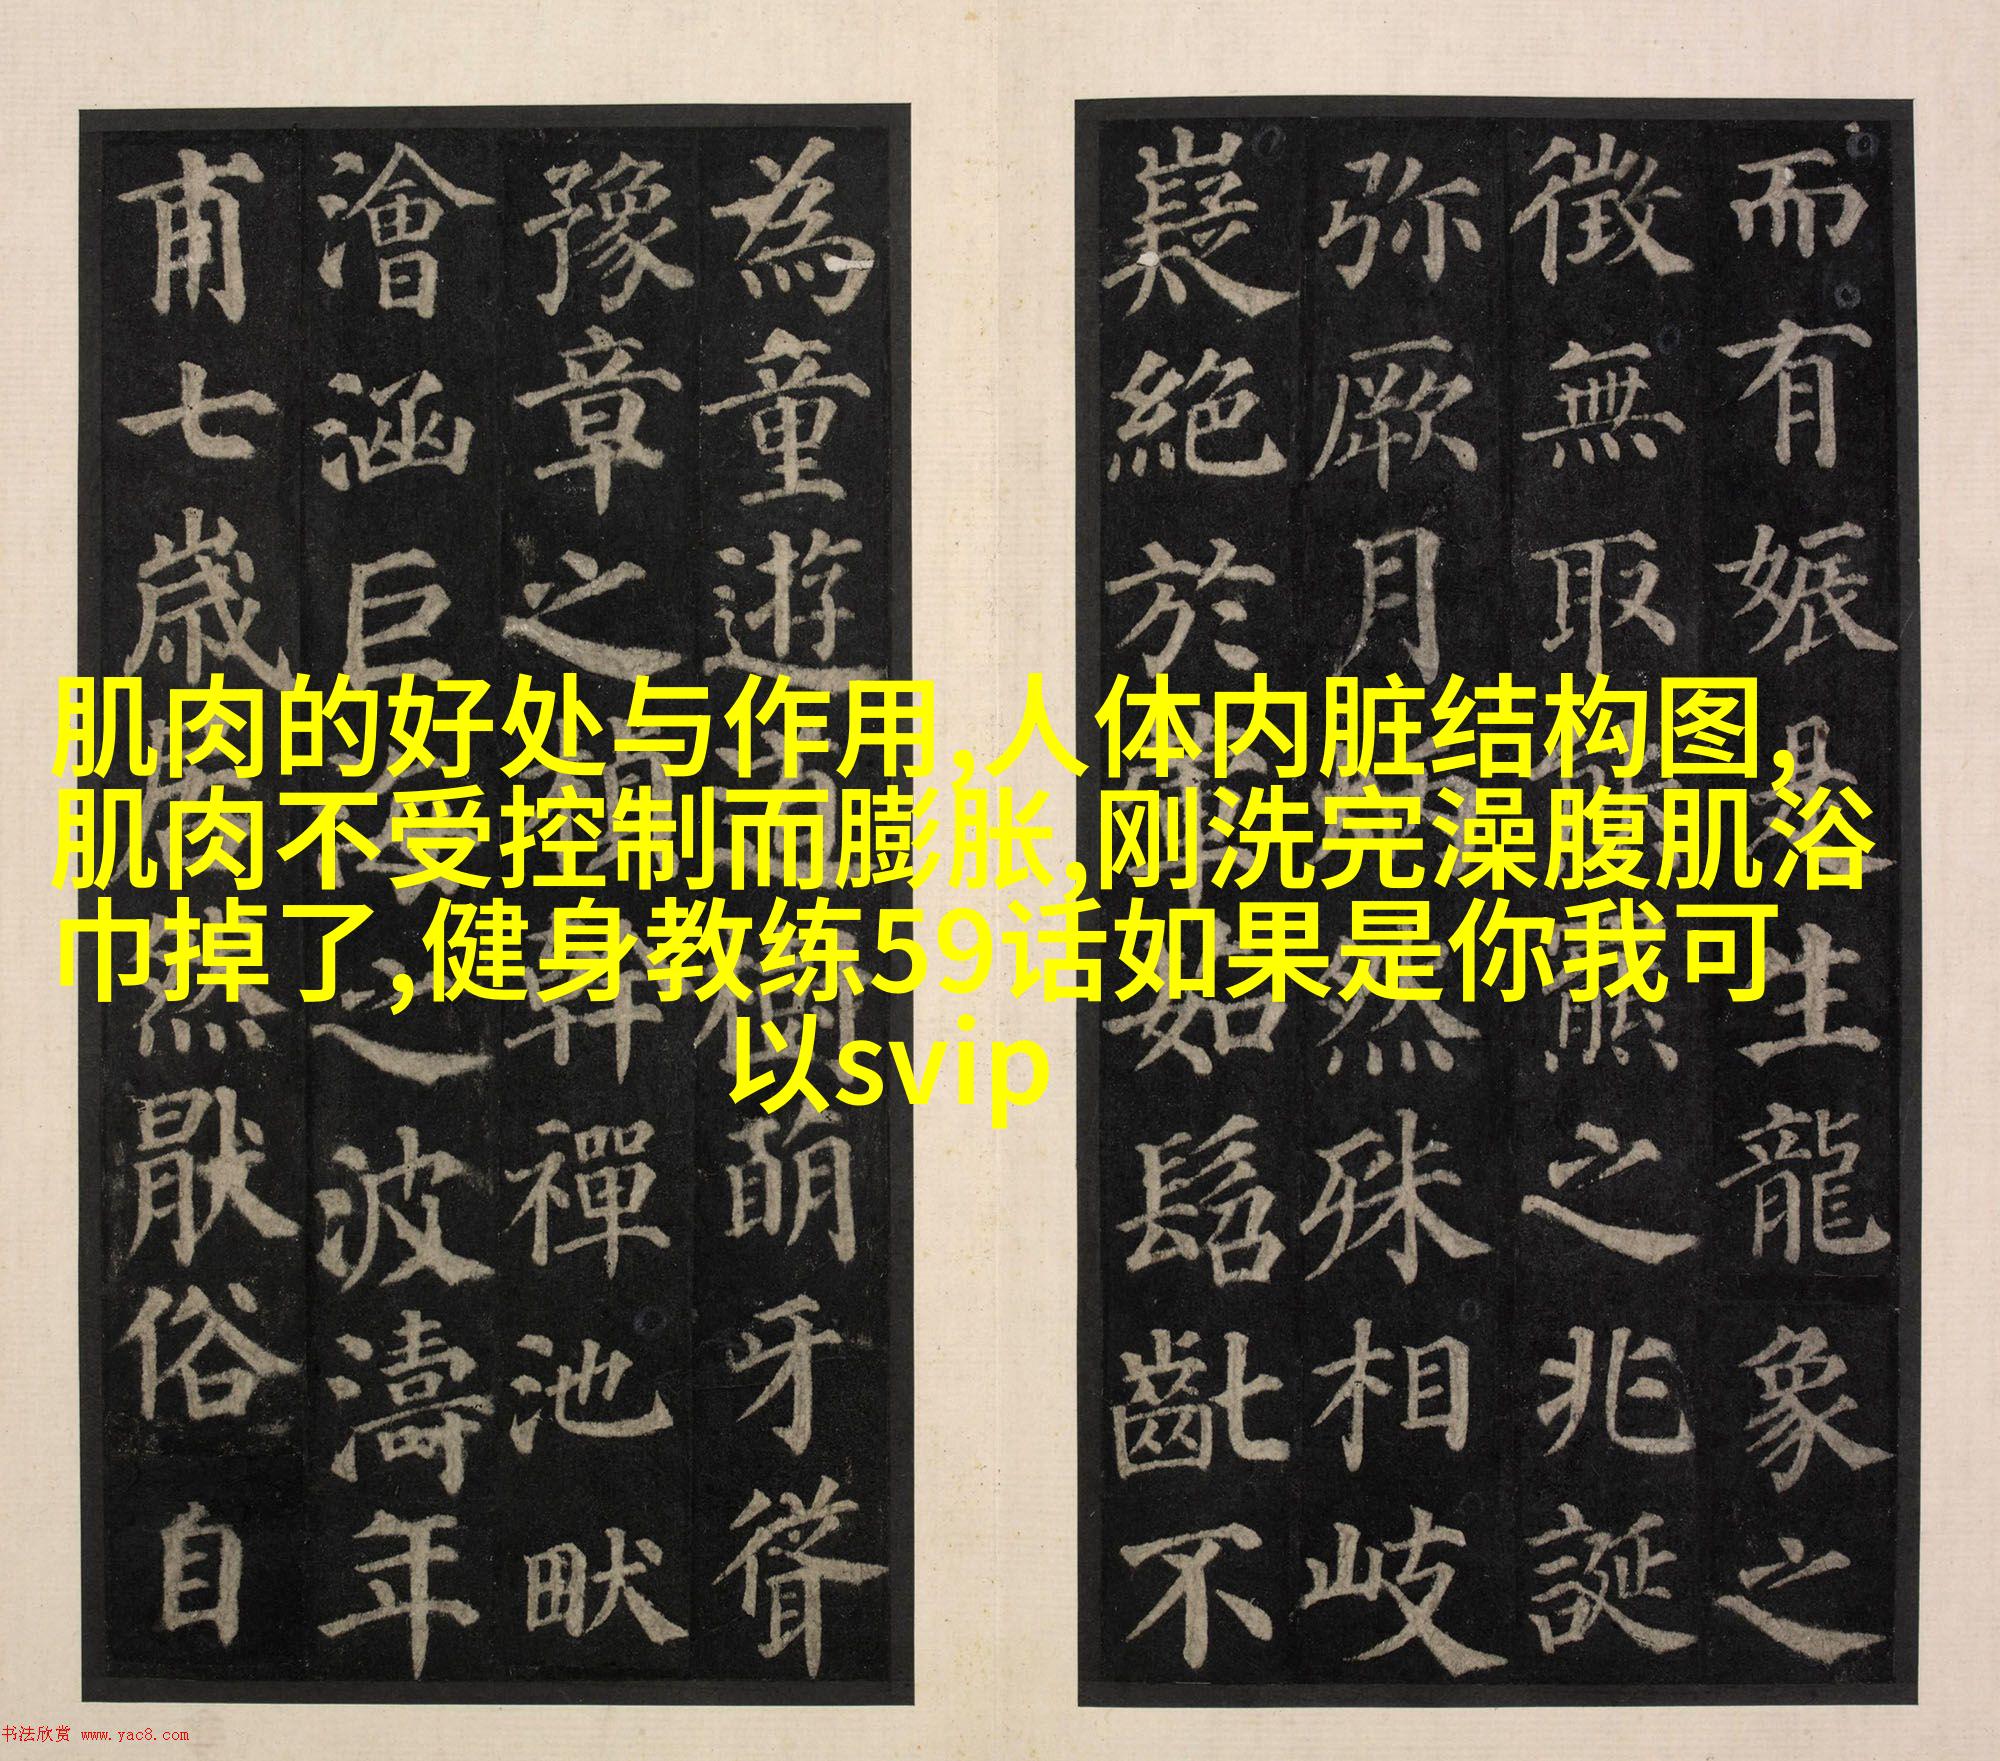 而有娠是生龍象之
徵無取羆之兆誕
弥厥月然殊相岐
嶷絕於茹髫齓不
為童遊樹萌牙聳
豫章之榦禪池畎
澮涵巨之波濤年
甫七歲然厭俗自
肌肉的好处与作用,人体内脏结构图,
肌肉不受控制而膨胀,刚洗完澡腹肌浴
巾掉了,健身教练59话如果是你我可
以svip
书法欣赏 www.yac8.com